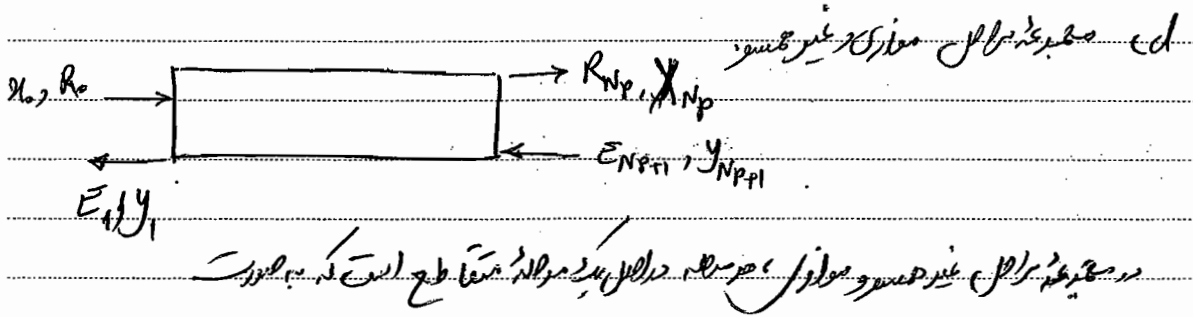 مجموعهٔ مراحل موازی و غیر همسو:
x₀, R₀ → R_Np, X_Np
E_Np+1, y_Np+1
E₁, y₁
در مجموعهٔ مراحل غیر همسو و موازی، هر مرحله در اصل یک مرحلهٔ متقاطع است که به صورت